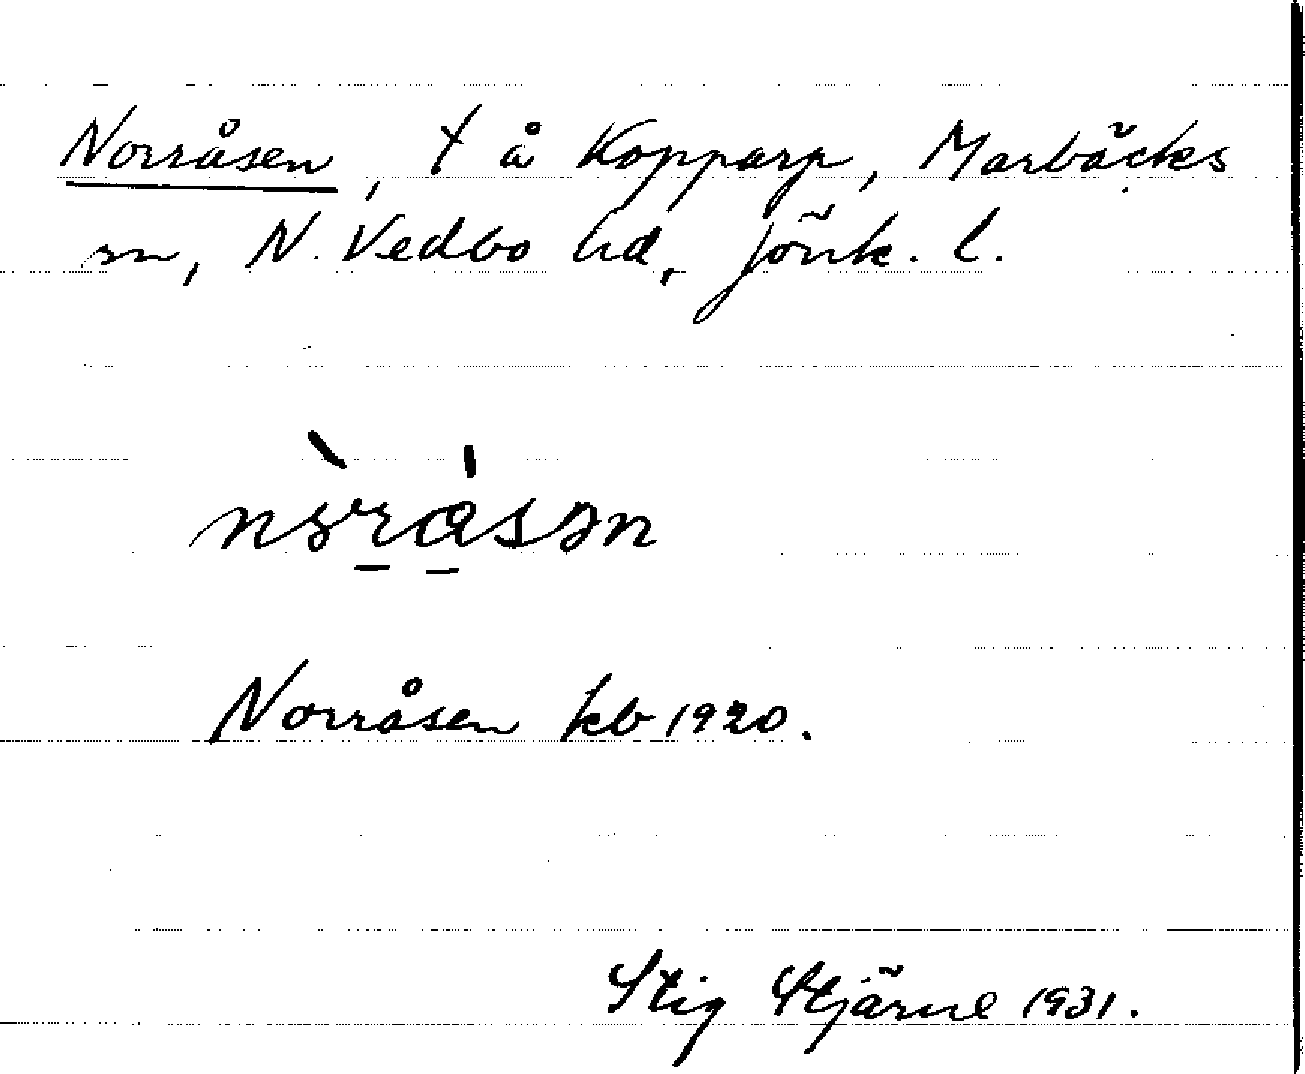 Norråsen, t å Kopparp, Marbäcks
sn, N. Vedbo hd, Jönk. l.
Norråsen kb 1920.
Stig Stjärne 1931.